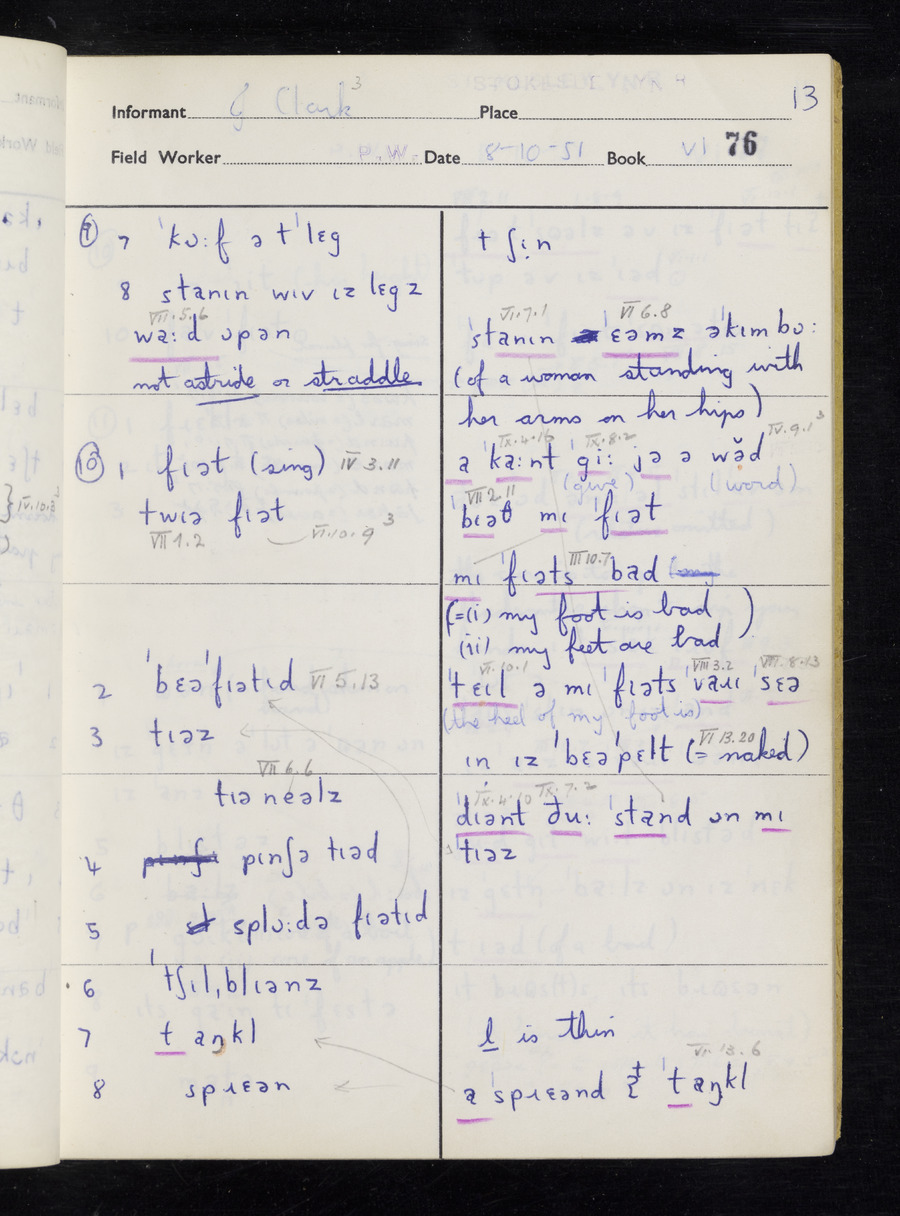 13
Informant G Clark 3 Place
Field Worker P.W. Date 8-10-51 Book VI 76
⑨ 7 ˈkʊ:f ə tˈlɛg
8 stanɪn wɪv ɪz lɛgz
VII.5.6
wa:d ʊpən
not astride or straddle
⑩ 1 fɪət (sing) IV 3.11
twɪə fɪət
VII 1.2 VI.10.9 3
2 ˈbɛəˈfɪətɪd VI 5.13
3 tɪəz
VII 6.6
tɪə neəlz
4 pɪnʃə tɪəd
5 splʊ:də fɪətɪd
6 ˈtʃɪlˌblɪənz
7 t aŋkl
8 spɹɛən
t ʃɪn
VI.7.1 VI 6.8
ˈstanɪn ˈɛəmz əkɪmbʊ:
(of a woman standing with
her arms on her hips)
IX.4.16 IX.8.2 IV.9.1 3
a ˈka:nt ˈgi: jə ə wəd
(give) (word)
VII 2.11
ˈbɪəθ mɪ ˈfɪət
III 10.7
mɪ ˈfɪəts bad
(=(i) my foot is bad
(ii) my feet are bad)
VI.10.1 VIII 3.2 VII.8.13
ˈtɛɪl ə mɪ ˈfɪəts ˈvaɹɪ ˈsɛə
(the heel of my foot is)
VI 13.20
ɪn ɪz ˈbɛəˈpɛlt (= naked)
IX.4.10 IX.7.2
ˈdɪənt ðu: ˈstand ʊn mɪ
ˈtɪəz
l is thin
VI.13.6
a ˈspɹɛənd ˈt aŋkl